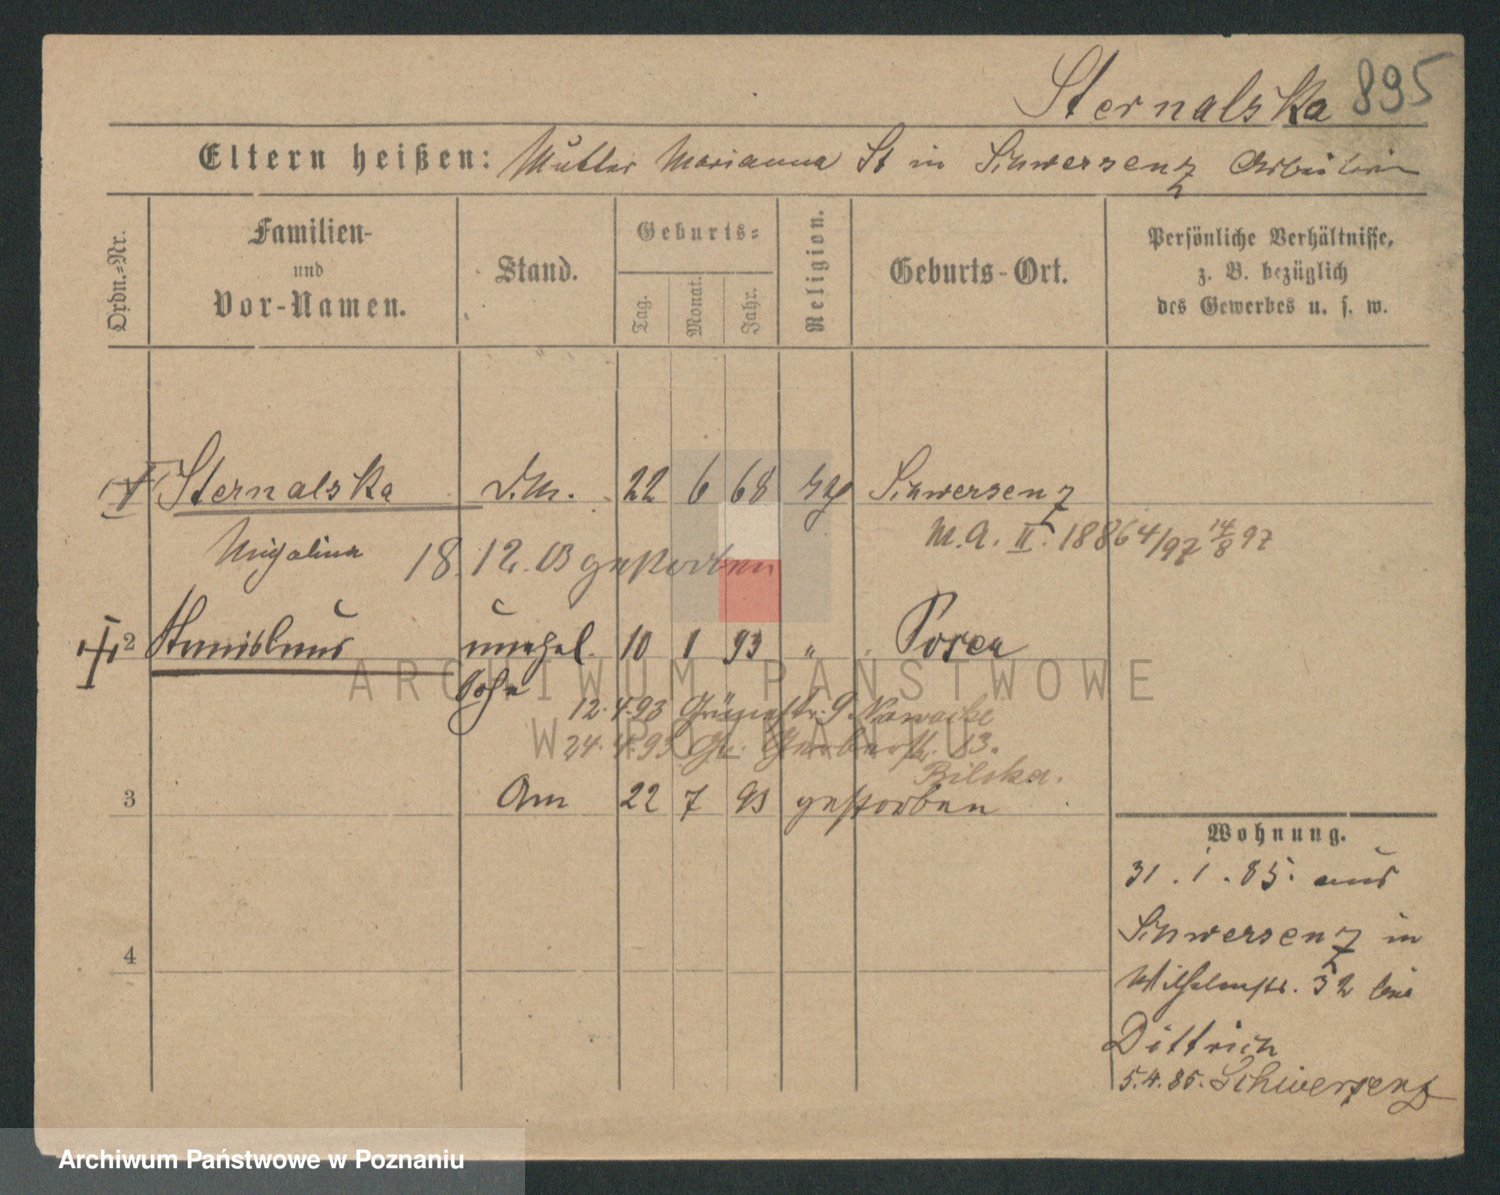 Sternalska 895
Eltern heißen: Mutter Marianna St in Schwersenz Arbeiterin
Ordn.-Nr.
Familien-
und
Vor-Namen.
Stand.
Geburts-
Tag.
Monat.
Jahr.
Religion.
Geburts-Ort.
Persönliche Verhältnisse,
z. B. bezüglich
des Gewerbes u. s. w.
Sternalska 22 6 68 Schwersenz
M.A. II. 18864/97 14/8 97
18. 12. 03 gestorben
2 Stanislaus unehel. 10 1 93 " Posen
Sohn
12.4.93 Grünestr. 9 Nowacke
24.4.93 Gr. Gerberstr. 13.
Bilska.
3 Am 22 7 93 gestorben
Wohnung.
31.1.85. aus
Schwersenz in
4
Wilhelmstr. 32 bei
Dittrich
5.4.85. Schwersenz
ARCHIWUM PAŃSTWOWE
W POZNANIU
Archiwum Państwowe w Poznaniu